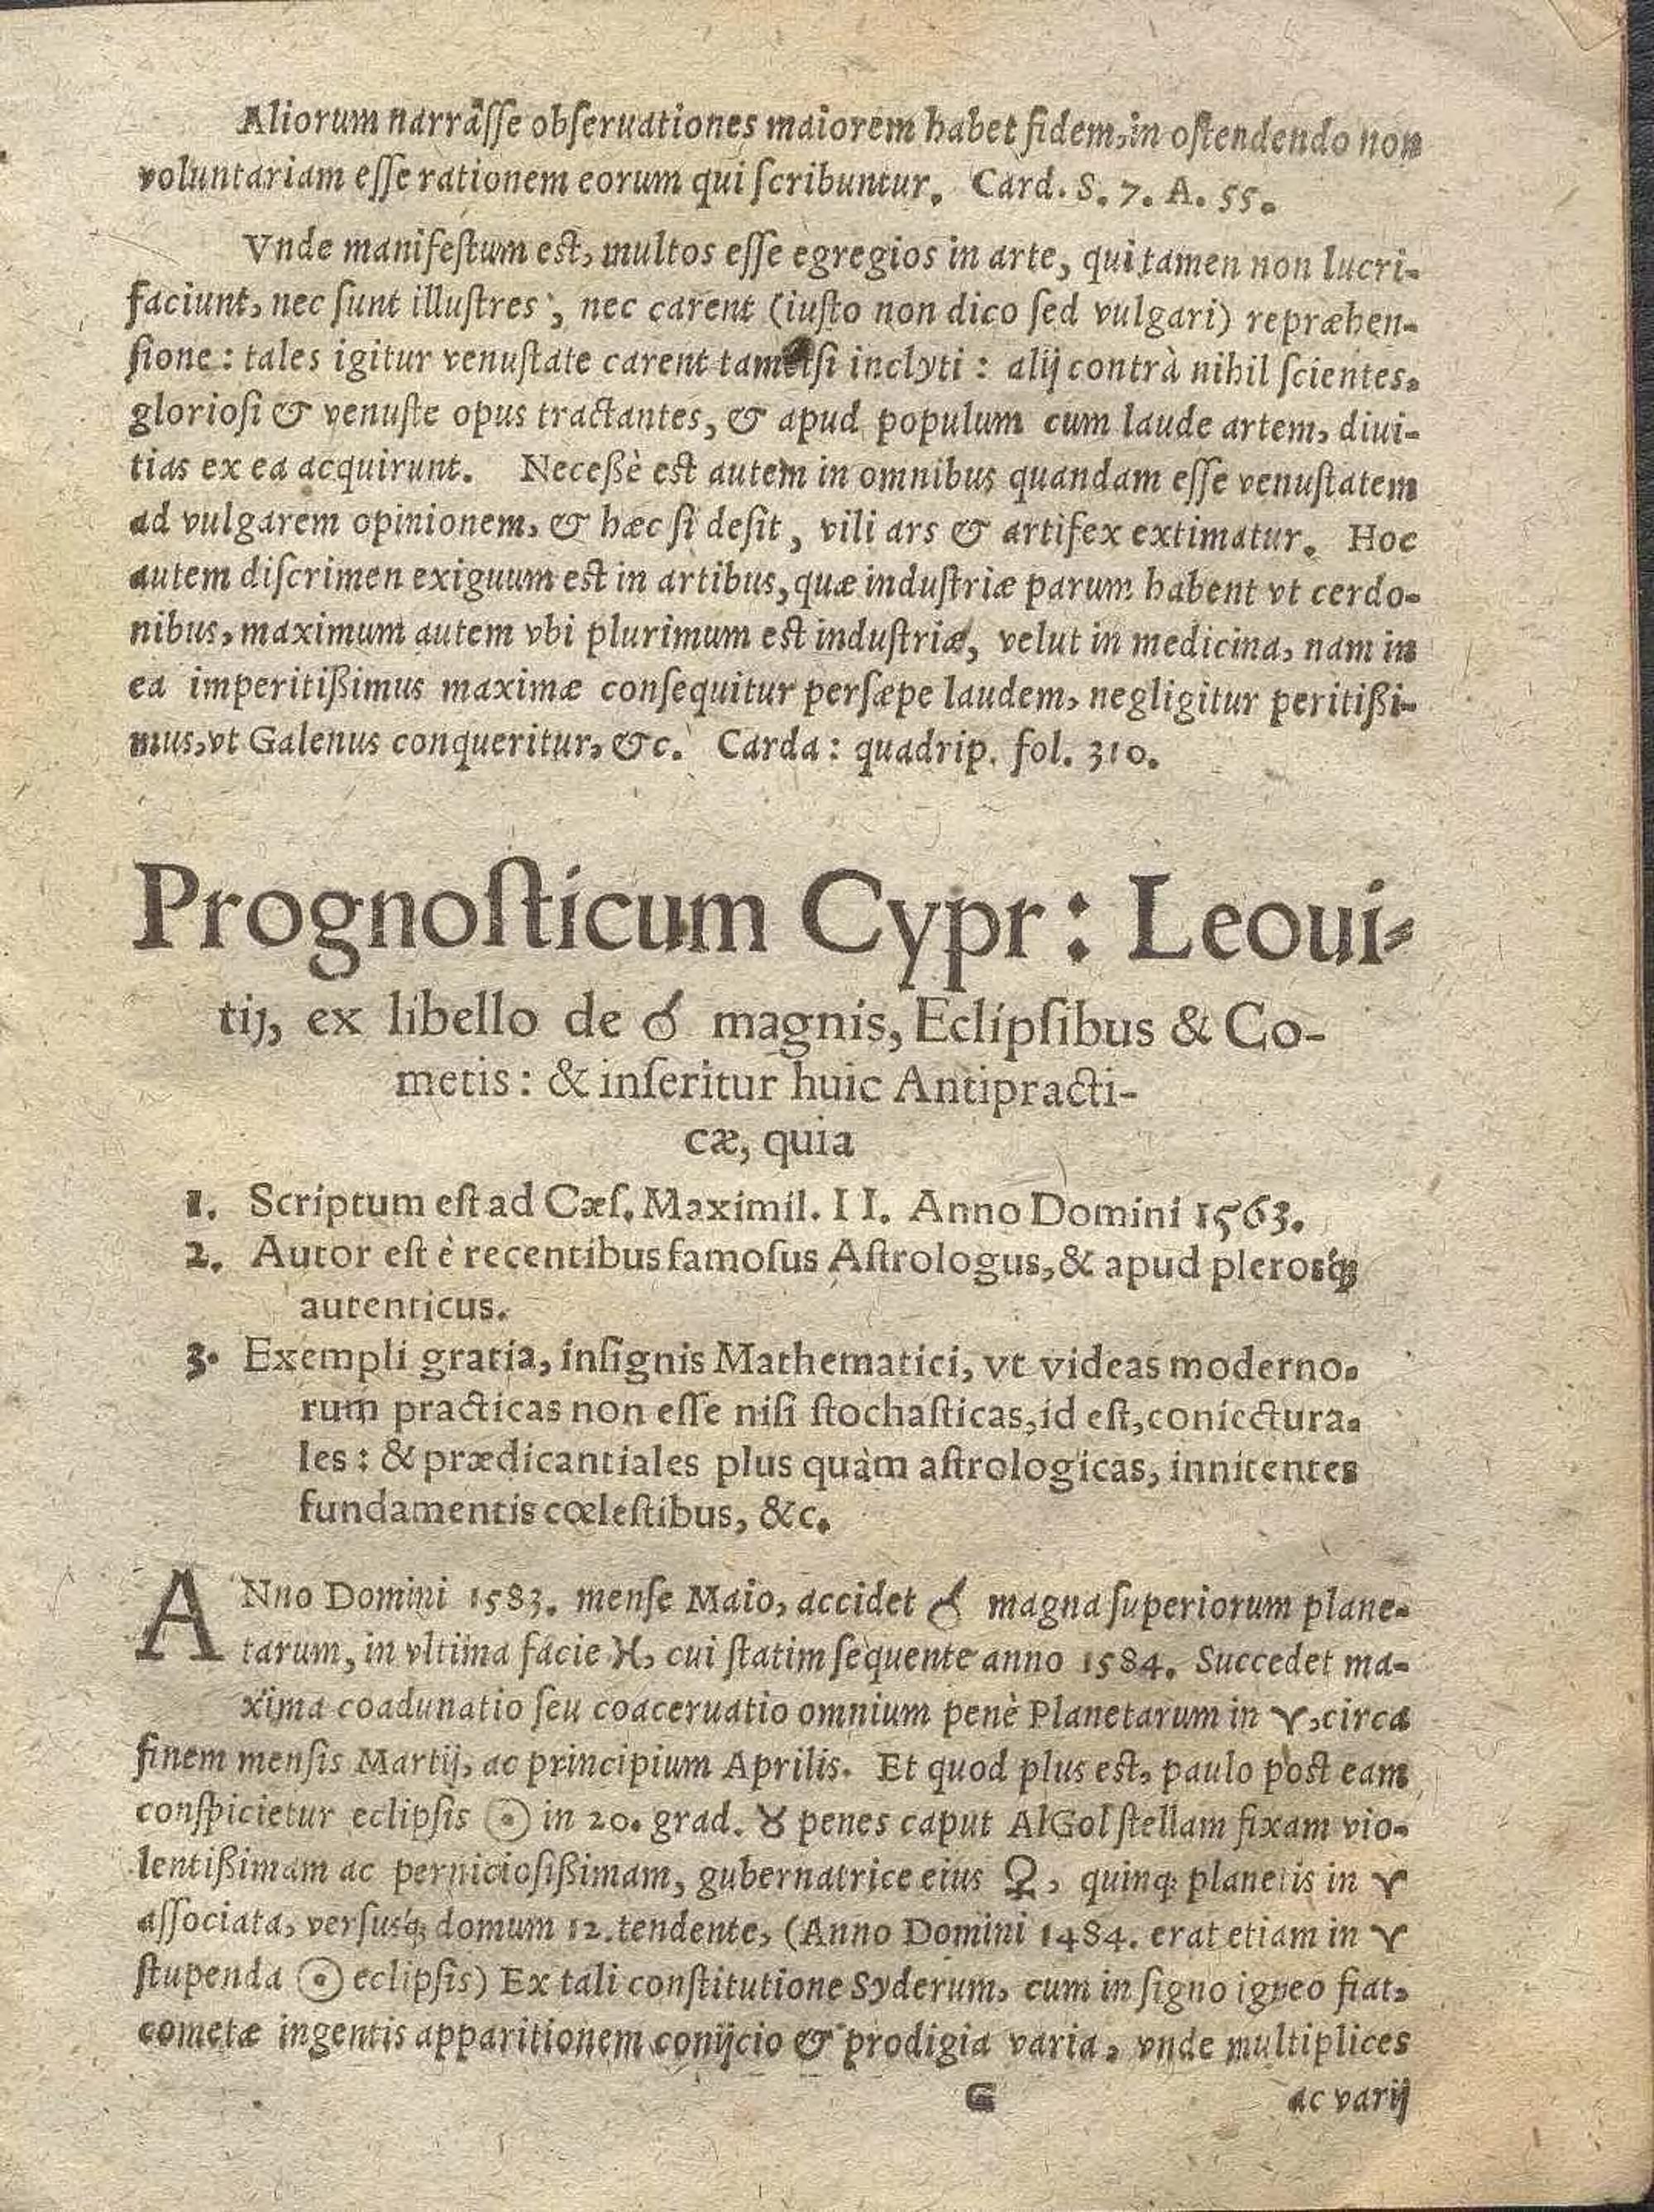 Aliorum narrâſſe obſeruationes maiorem habet fidem, in oſtendendo non
voluntariam eſſe rationem eorum qui ſcribuntur. Card. S. 7. A. 55.
Vnde manifeſtum eſt, multos eſſe egregios in arte, qui tamen non lucri-
faciunt, nec ſunt illuſtres, nec carent (iuſto non dico ſed vulgari) repræhen-
ſione: tales igitur venuſtate carent tametſi inclyti: alij contrà nihil ſcientes,
glorioſi & venuſte opus tractantes, & apud populum cum laude artem, diui-
tias ex ea acquirunt. Neceßè eſt autem in omnibus quandam eſſe venuſtatem
ad vulgarem opinionem, & hæc ſi deſit, vili ars & artifex extimatur. Hoc
autem diſcrimen exiguum eſt in artibus, quæ induſtriæ parum habent vt cerdo-
nibus, maximum autem vbi plurimum eſt induſtriæ, velut in medicina, nam in
ea imperitißimus maximæ conſequitur perſæpe laudem, negligitur peritißi-
mus, vt Galenus conqueritur, &c. Carda: quadrip. fol. 310.
Prognoſticum Cypr: Leoui-
tij, ex libello de ☌ magnis, Eclipſibus & Co-
metis: & inſeritur huic Antipracti-
cæ, quia
1. Scriptum eſt ad Cæſ. Maximil. II. Anno Domini 1563.
2. Autor eſt è recentibus famoſus Aſtrologus, & apud pleroſq́ꝫ
autenticus.
3. Exempli gratia, inſignis Mathematici, vt videas moderno-
rum practicas non eſſe niſi ſtochaſticas, id eſt, coniectura-
les: & prædicantiales plus quàm aſtrologicas, innitentes
fundamentis cœleſtibus, &c.
ANno Domini 1583. menſe Maio, accidet ☌ magna ſuperiorum plane-
tarum, in vltima facie ♓, cui ſtatim ſequente anno 1584. Succedet ma-
xima coadunatio ſeu coaceruatio omnium penè Planetarum in ♈, circa
finem menſis Martij, ac principium Aprilis. Et quod plus eſt, paulo poſt eam
conſpicietur eclipſis ☉ in 20. grad. ♉ penes caput AlGol ſtellam fixam vio-
lentißimam ac pernicioſißimam, gubernatrice eius ♀, quinqꝫ planetis in ♈
aſſociata, verſusq́ꝫ domum 12. tendente, (Anno Domini 1484. erat etiam in ♈
ſtupenda ☉ eclipſis) Ex tali conſtitutione Syderum, cum in ſigno igneo fiat,
cometæ ingentis apparitionem conijcio & prodigia varia, vnde multiplices
G ac varij